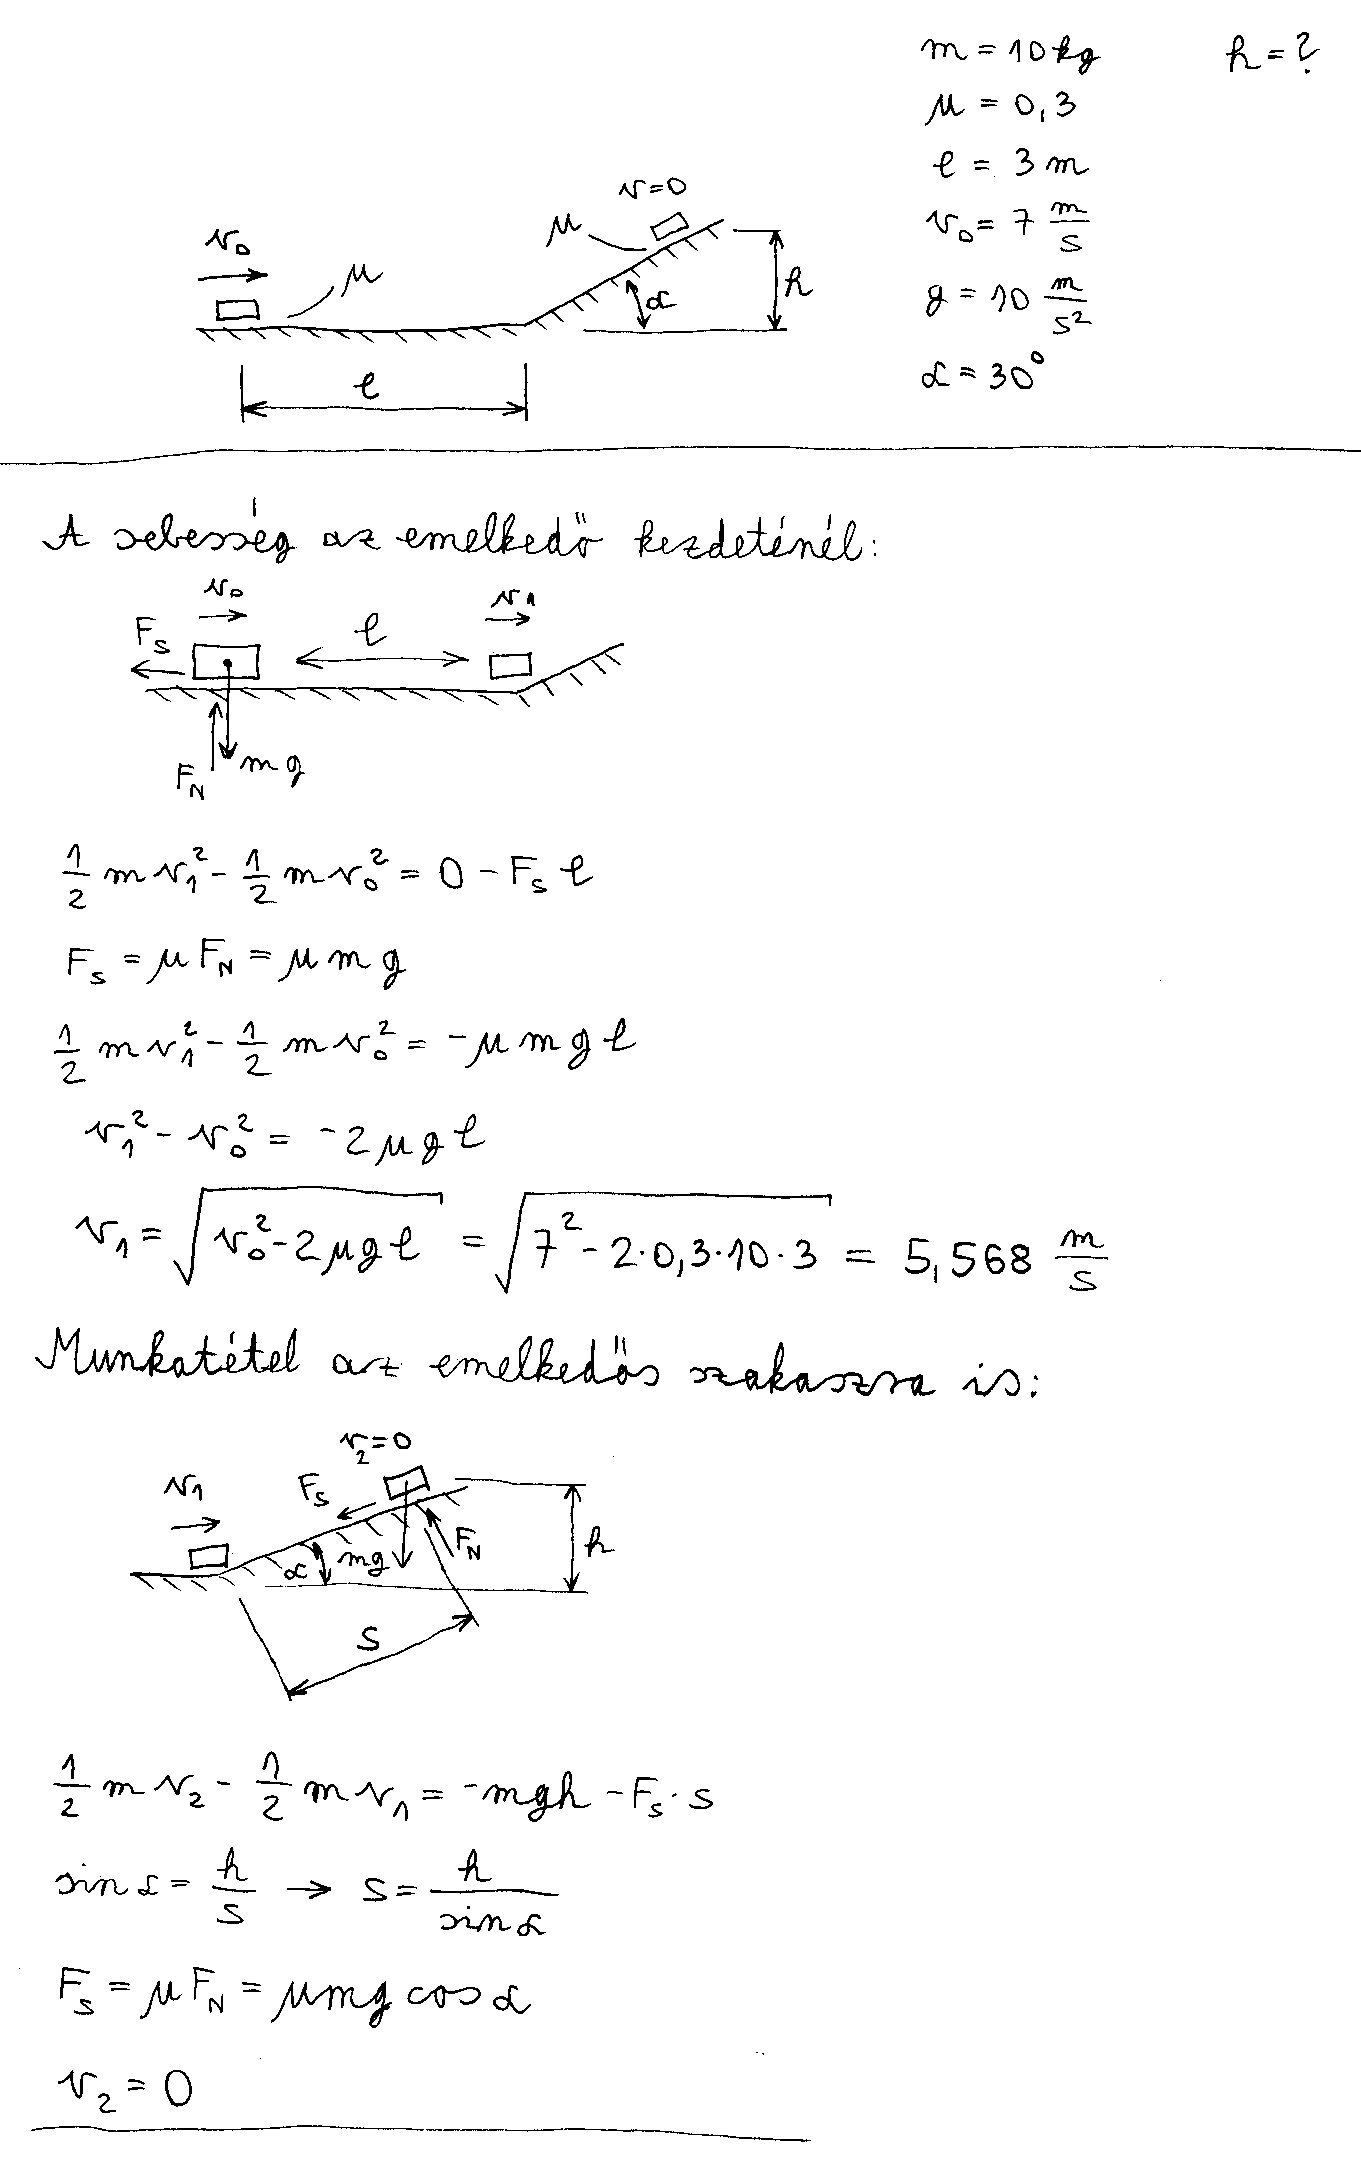 m = 10 kg h = ?
μ = 0,3
l = 3 m
v₀ = 7 m/s
g = 10 m/s²
α = 30°
v₀
μ
μ
v=0
α
h
l
A sebesség az emelkedő kezdeténél:
v₀
v₁
F_s
l
F_N
mg
1/2 m v₁² - 1/2 m v₀² = 0 - F_s l
F_s = μ F_N = μ m g
1/2 m v₁² - 1/2 m v₀² = -μ m g l
v₁² - v₀² = -2 μ g l
v₁ = √(v₀² - 2 μ g l) = √(7² - 2·0,3·10·3) = 5,568 m/s
Munkatétel az emelkedős szakaszra is:
v₂=0
v₁
F_s
F_N
mg
α
h
s
1/2 m v₂ - 1/2 m v₁ = -mgh - F_s · s
sin α = h/s → s = h/sin α
F_s = μ F_N = μ m g cos α
v₂ = 0